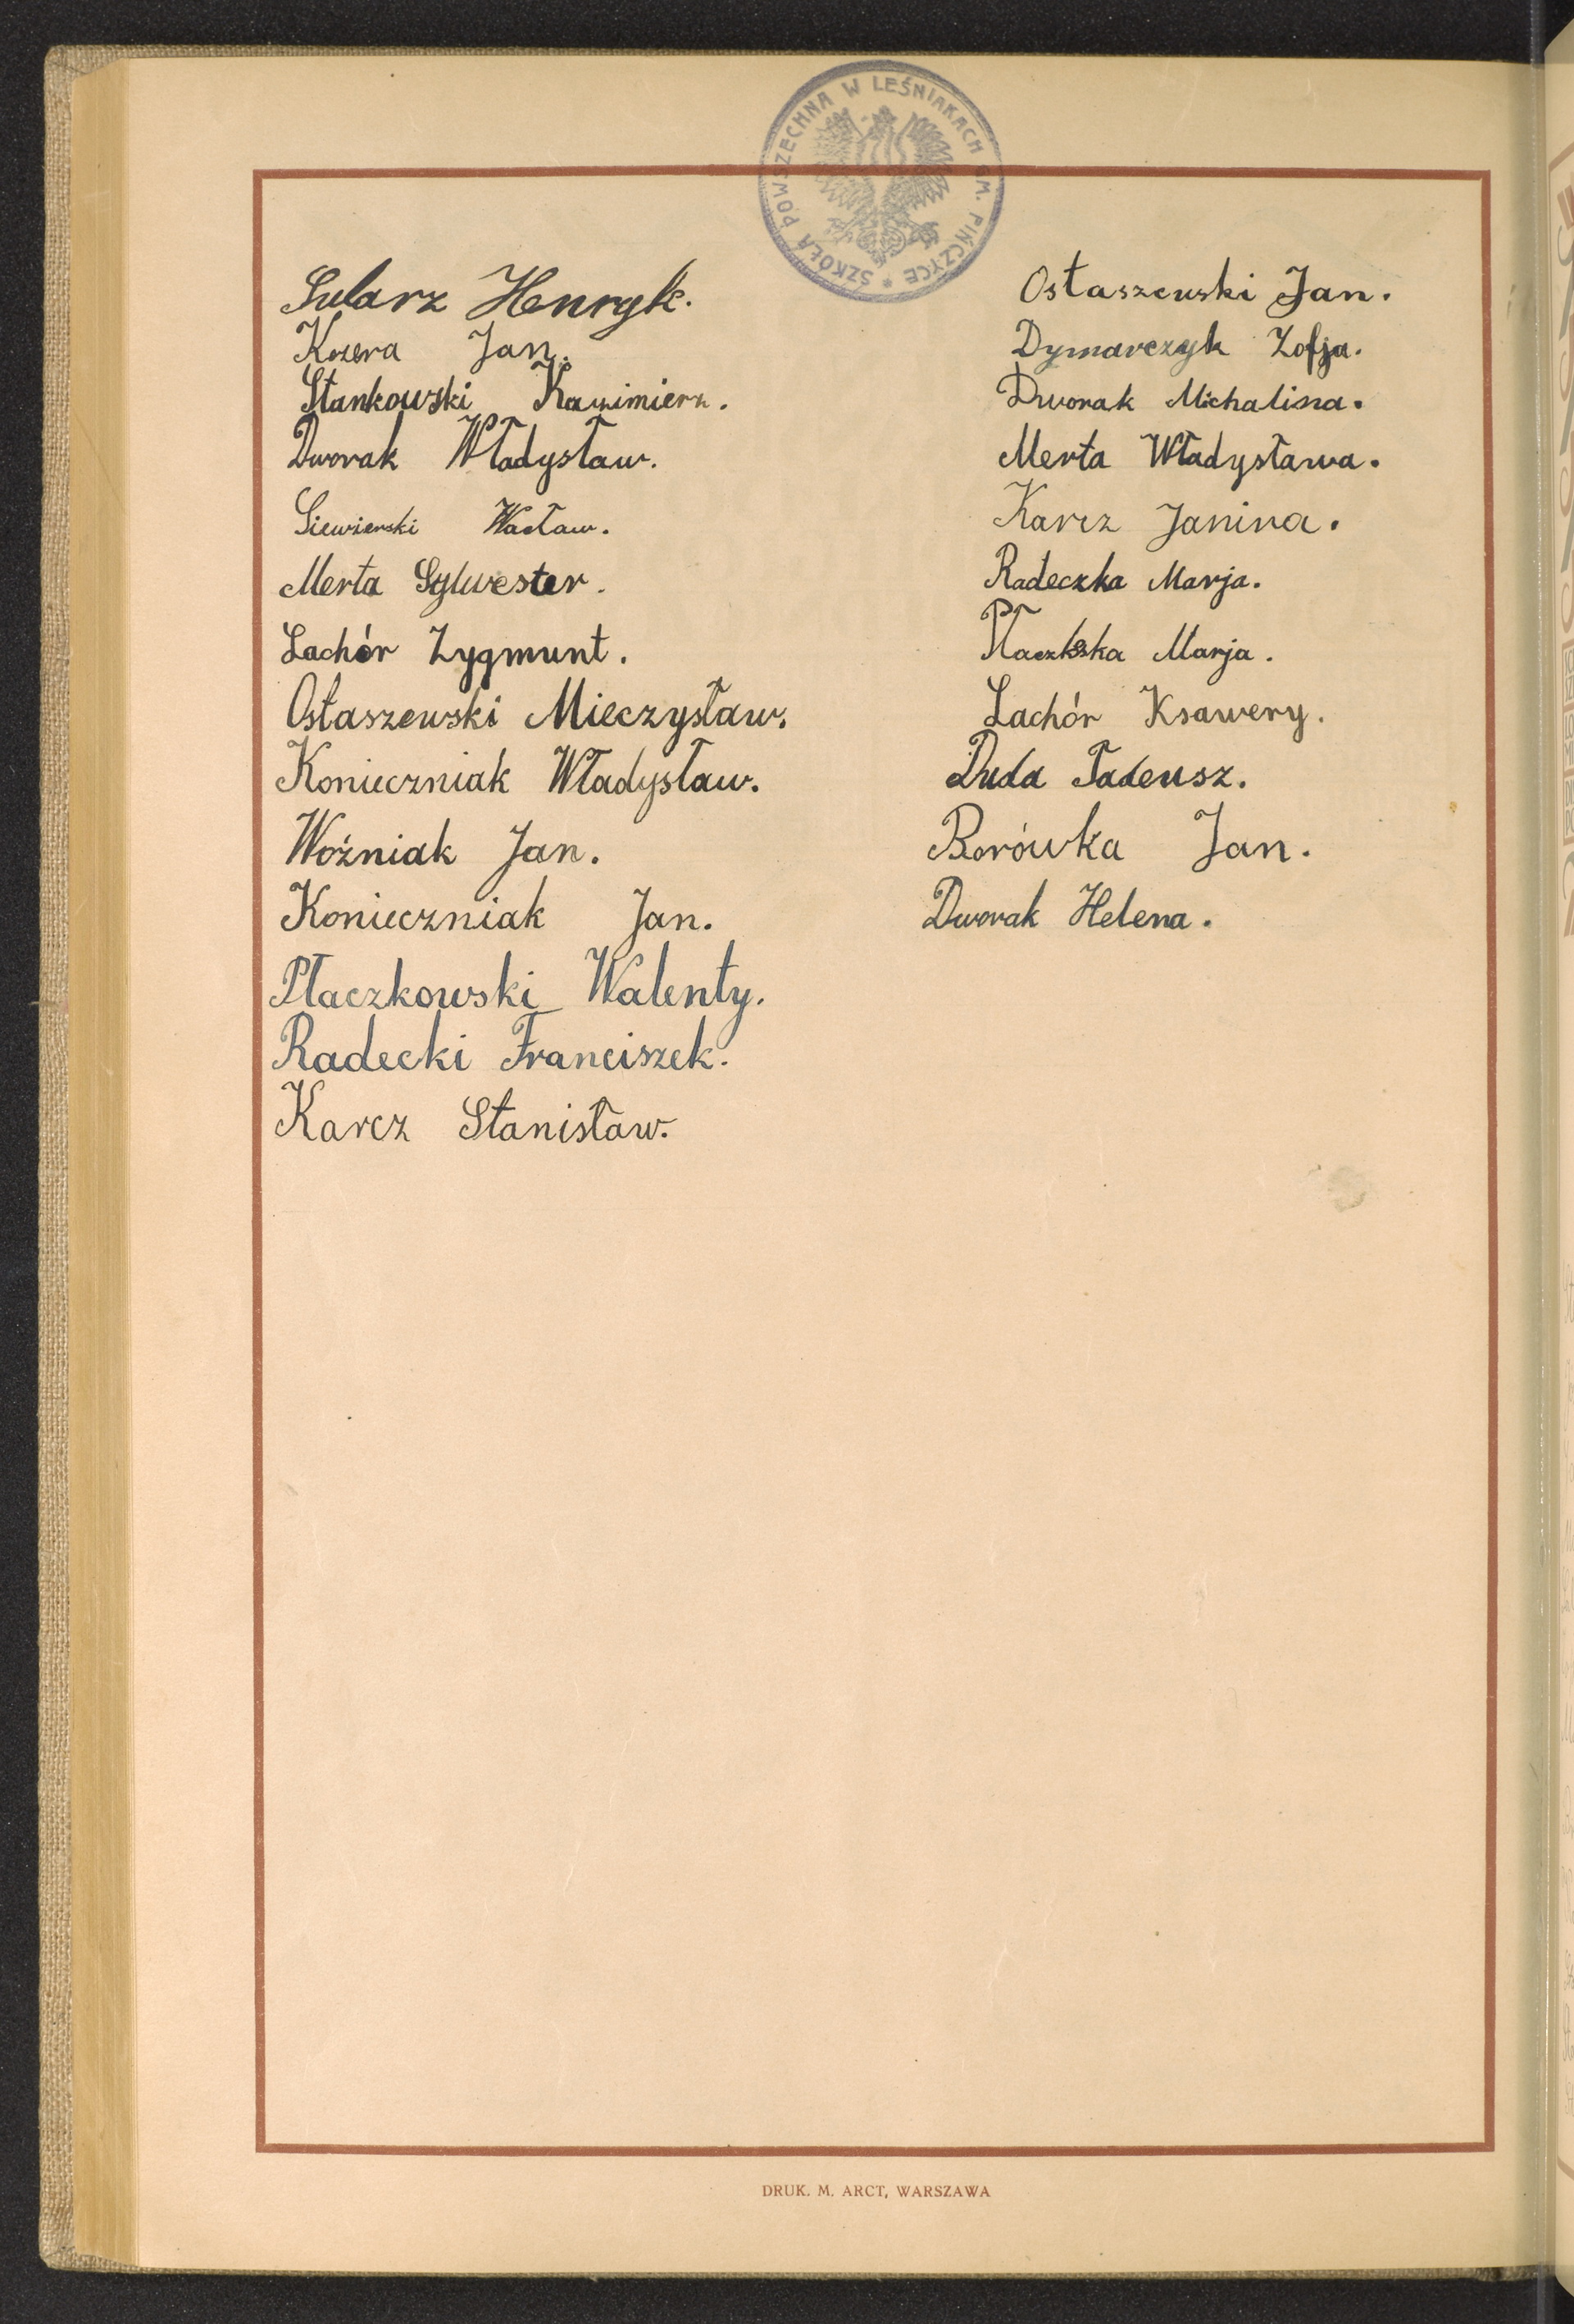 SZKOŁA POWSZECHNA W LEŚNIAKACH GM. PIŃCZYCE *
Sularz Henryk.
Kozera Jan.
Stankowski Kazimierz.
Dworak Władysław.
Siewierski Wacław.
Merta Sylwester.
Lachór Zygmunt.
Ostaszewski Mieczysław.
Konieczniak Władysław.
Woźniak Jan.
Konieczniak Jan.
Płaczkowski Walenty.
Radecki Franciszek.
Karcz Stanisław.
Ostaszewski Jan.
Dymarczyk Zofja.
Dworak Michalina.
Merta Władysława.
Karcz Janina.
Radeczka Marja.
Marja.
Lachór Ksawery.
Duda Tadeusz.
Borówka Jan.
Dworak Helena.
DRUK. M. ARCT, WARSZAWA